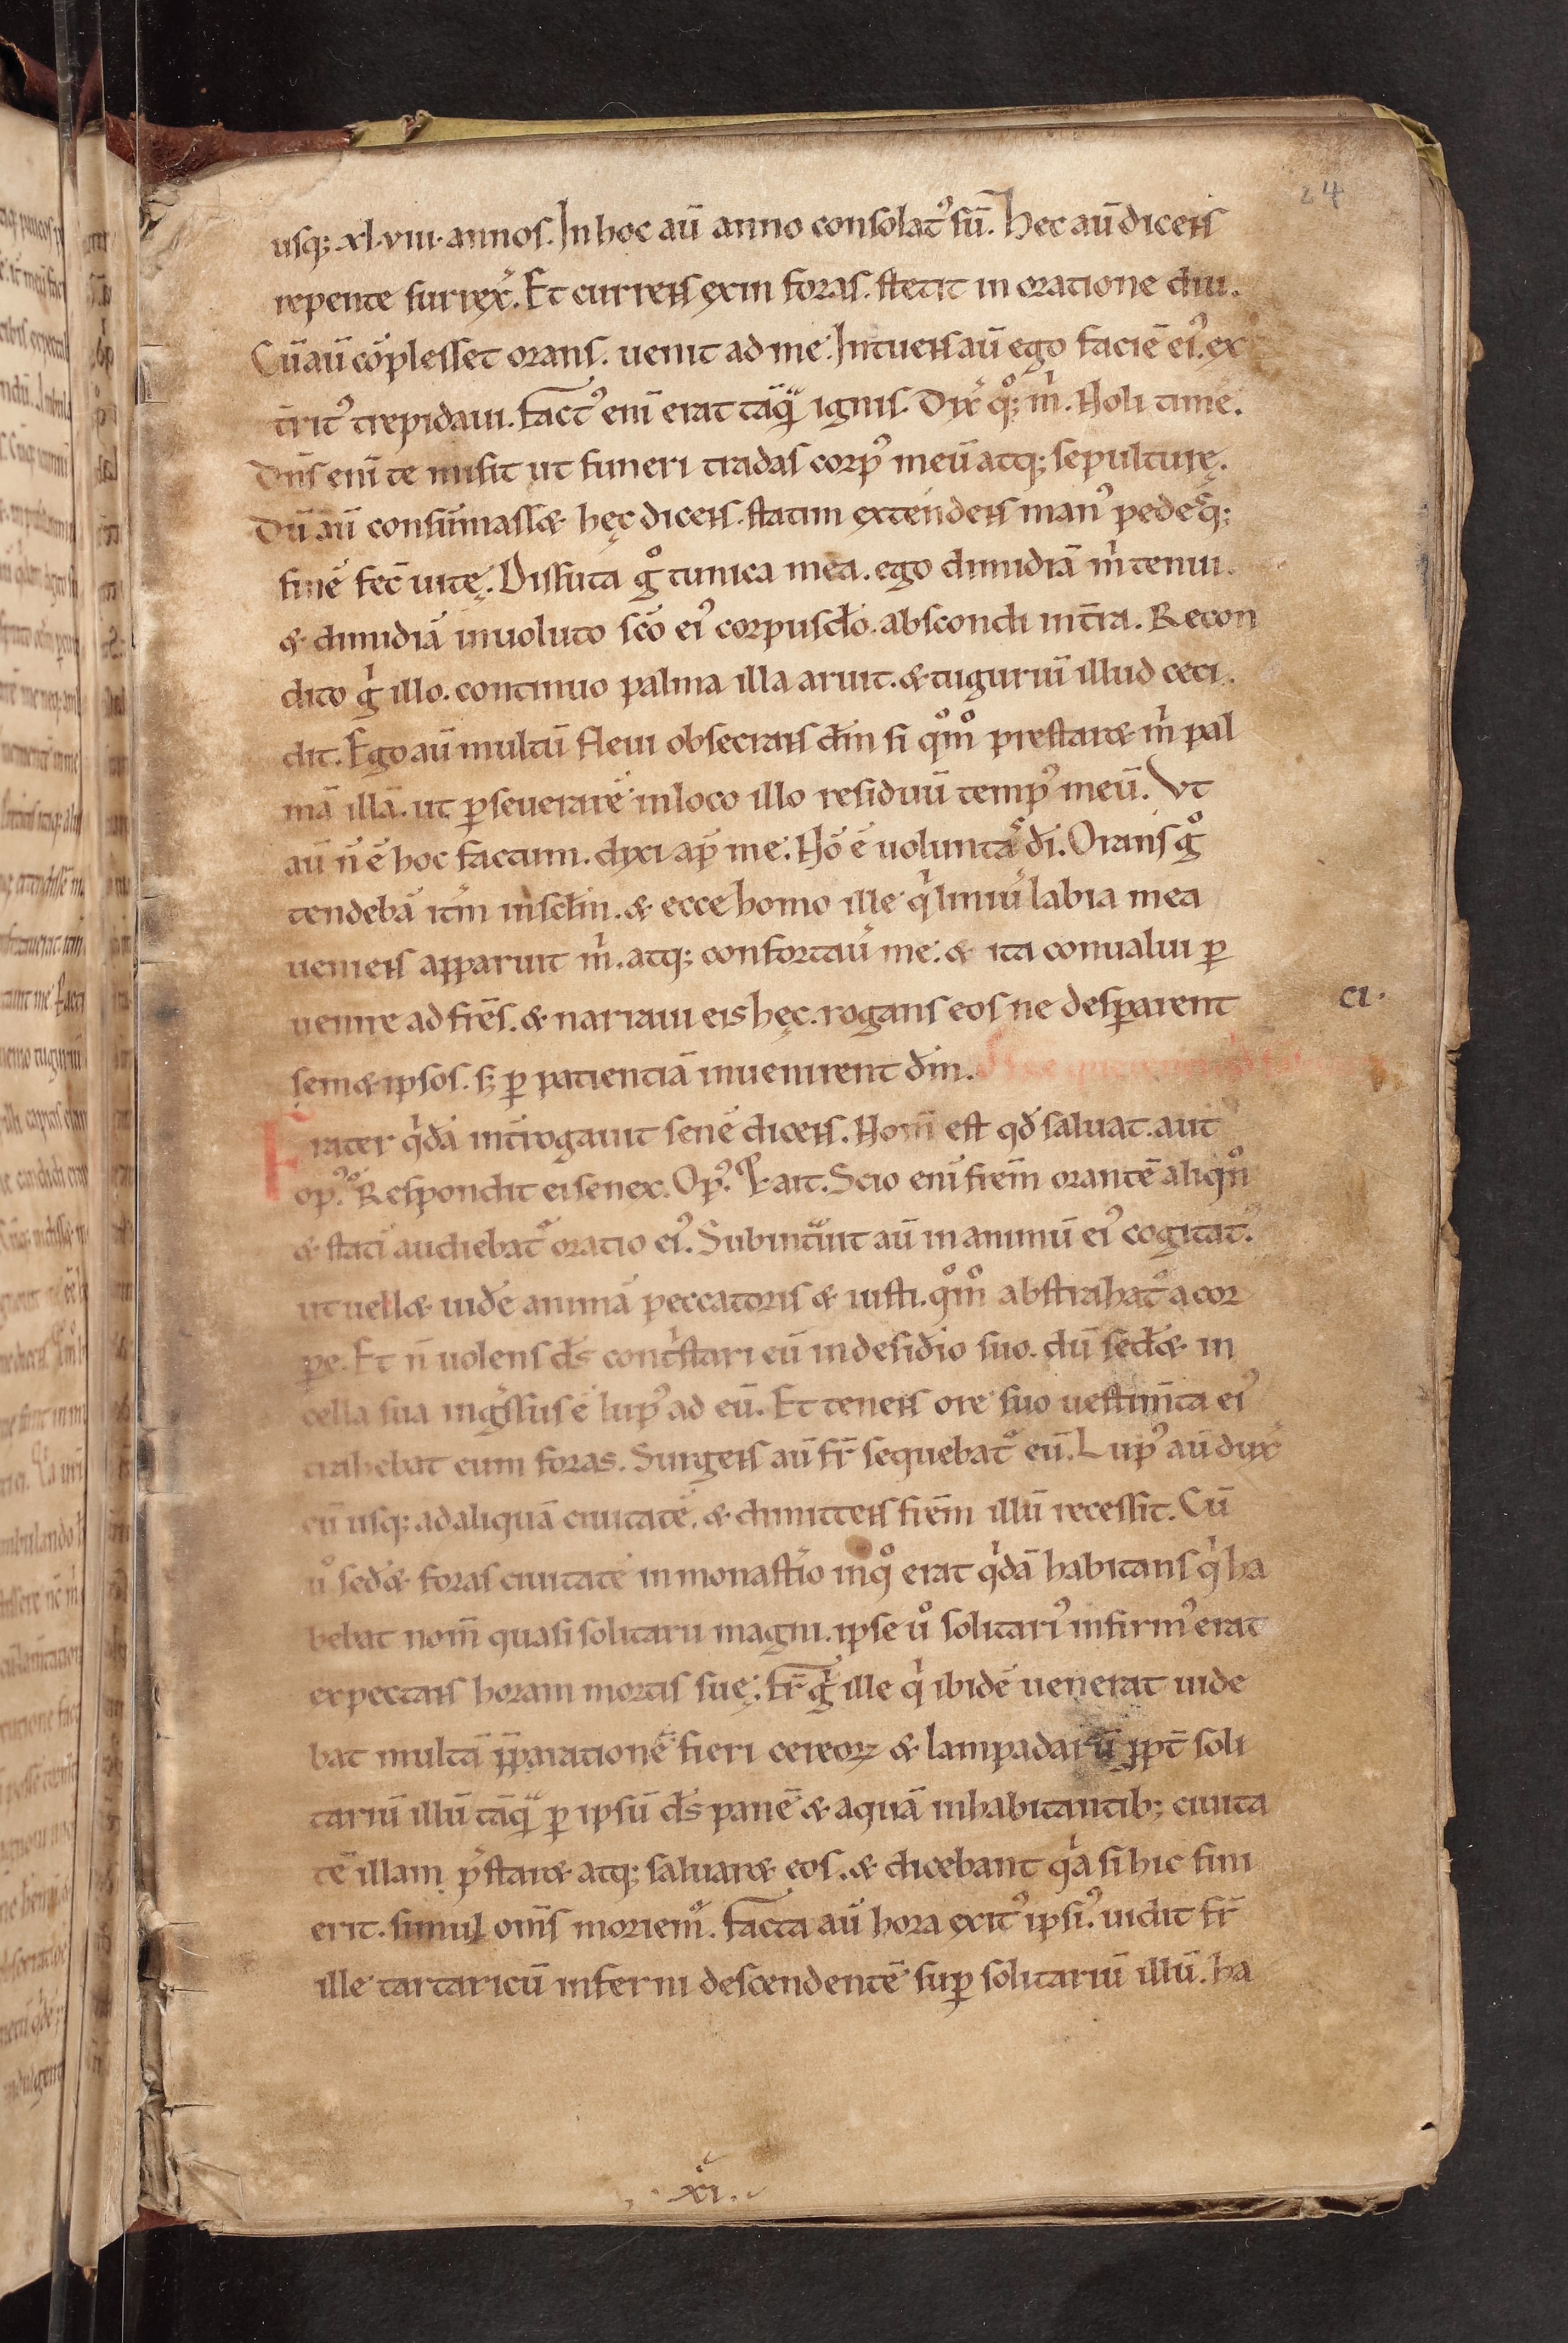 24
usq; xl·viii· annos. In hoc aū anno consolatꝰ sū. Hec aū dicens
repente surrex̾. Et currens exiit foras. stetit in oratione diu.
Cū aū cōplesset orans. uenit ad me. Intuens aū ego faciē eiꝰ. ex
t̄ritꝰ trepidaui. Factꝰ eni erat tāqͣ ignis. Dix̾ qͦ; m̍. Noli timē.
Dn̄s eni te misit ut funeri tradas corpꝰ meū atq; sepulturę.
Dū aū consūmass& hęc dicens. statim extendens manꝰ pedesq;
finē fec̄ uitę. Dissuta gͦ tunica mea. ego dimidiā m̍ tenui.
& dimidiā inuoluto sc̄o eiꝰ corpusclo. abscondi in t̄ra. Recon
dito g̍ illo. continuo palma illa aruit. & tuguriū illud ceci
dit. Ego aū multū fleui obsecrans dm̄ si qͦmͦ prestar& m̍ pal
mā illā. ut ꝑseuerarē in loco illo residuū tempꝰ meū. Vt
aū n̄ ē hoc factum. dixi ap̄ me. Nō ē uoluntas dī. Orans gͦ
tendebā itm̄ in sclm̄. & ecce homo ille q̍ liniu̾ labia mea
ueniens apparuit m̍. atq; confortau̾ me. & ita conualui ꝑ
uenire ad frēs. & narraui eis hęc. rogans eos ne desꝑarent
ci·
sem&ipsos. s; ꝑ patientiā inuenirent dm̄.
Frater q̍dā int̄rogauit senē dicens. Nom̄ est qd̄ saluat. aut
opꝰ. Respondit ei senex. Opꝰ. ait. Scio eni frēm orantē aliqn̄
& stati audiebat᷑ oratio eiꝰ. Subintͣuit aū in animū eiꝰ cogitatꝰ.
ut uell& uidē animā peccatoris & iusti. qͦmͦ abstrahat᷑ a cor
pe. Et n̄ uolens ds̄ cont̍stari eū in desid̾io suo. dū sed̾& in
cella sua ing̾ssus ē lupꝰ ad eū. Et tenens ore suo uestim̄ta eiꝰ
trahebat eum foras. Surgens aū fr̄ sequebat᷑ eū. Lupꝰ aū dux̾
eū usq; ad aliquā ciuitatē. & dimittens frēm illū recessit. Cū
uͦ sed̾& foras ciuitatē in monast̾io in qͦ erat q̍dā habitans q̍ ha
bebat nom̄ quasi solitarii magni. ipse uͦ solitariꝰ infirmꝰ erat
expectans horam mortis suę. fr̄ g̍ ille q̍ ibidē uenerat uide
bat multā p̄parationē fieri cereoꝝ & lampadarū ꝓpt̄ soli
tariū illū tāqͣ ꝑ ipsū ds̄ panē & aquā inhabitantib; ciuita
tē illam p̄star& atq; saluar& eos. & dicebant q̍a si hic fini
erit. simul om̄s moriem᷑. Facta aū hora exitꝰ ipsiꝰ. uidit fr̄
ille tartaricū inferni descendentē suꝑ solitariū illū. ha
xi.